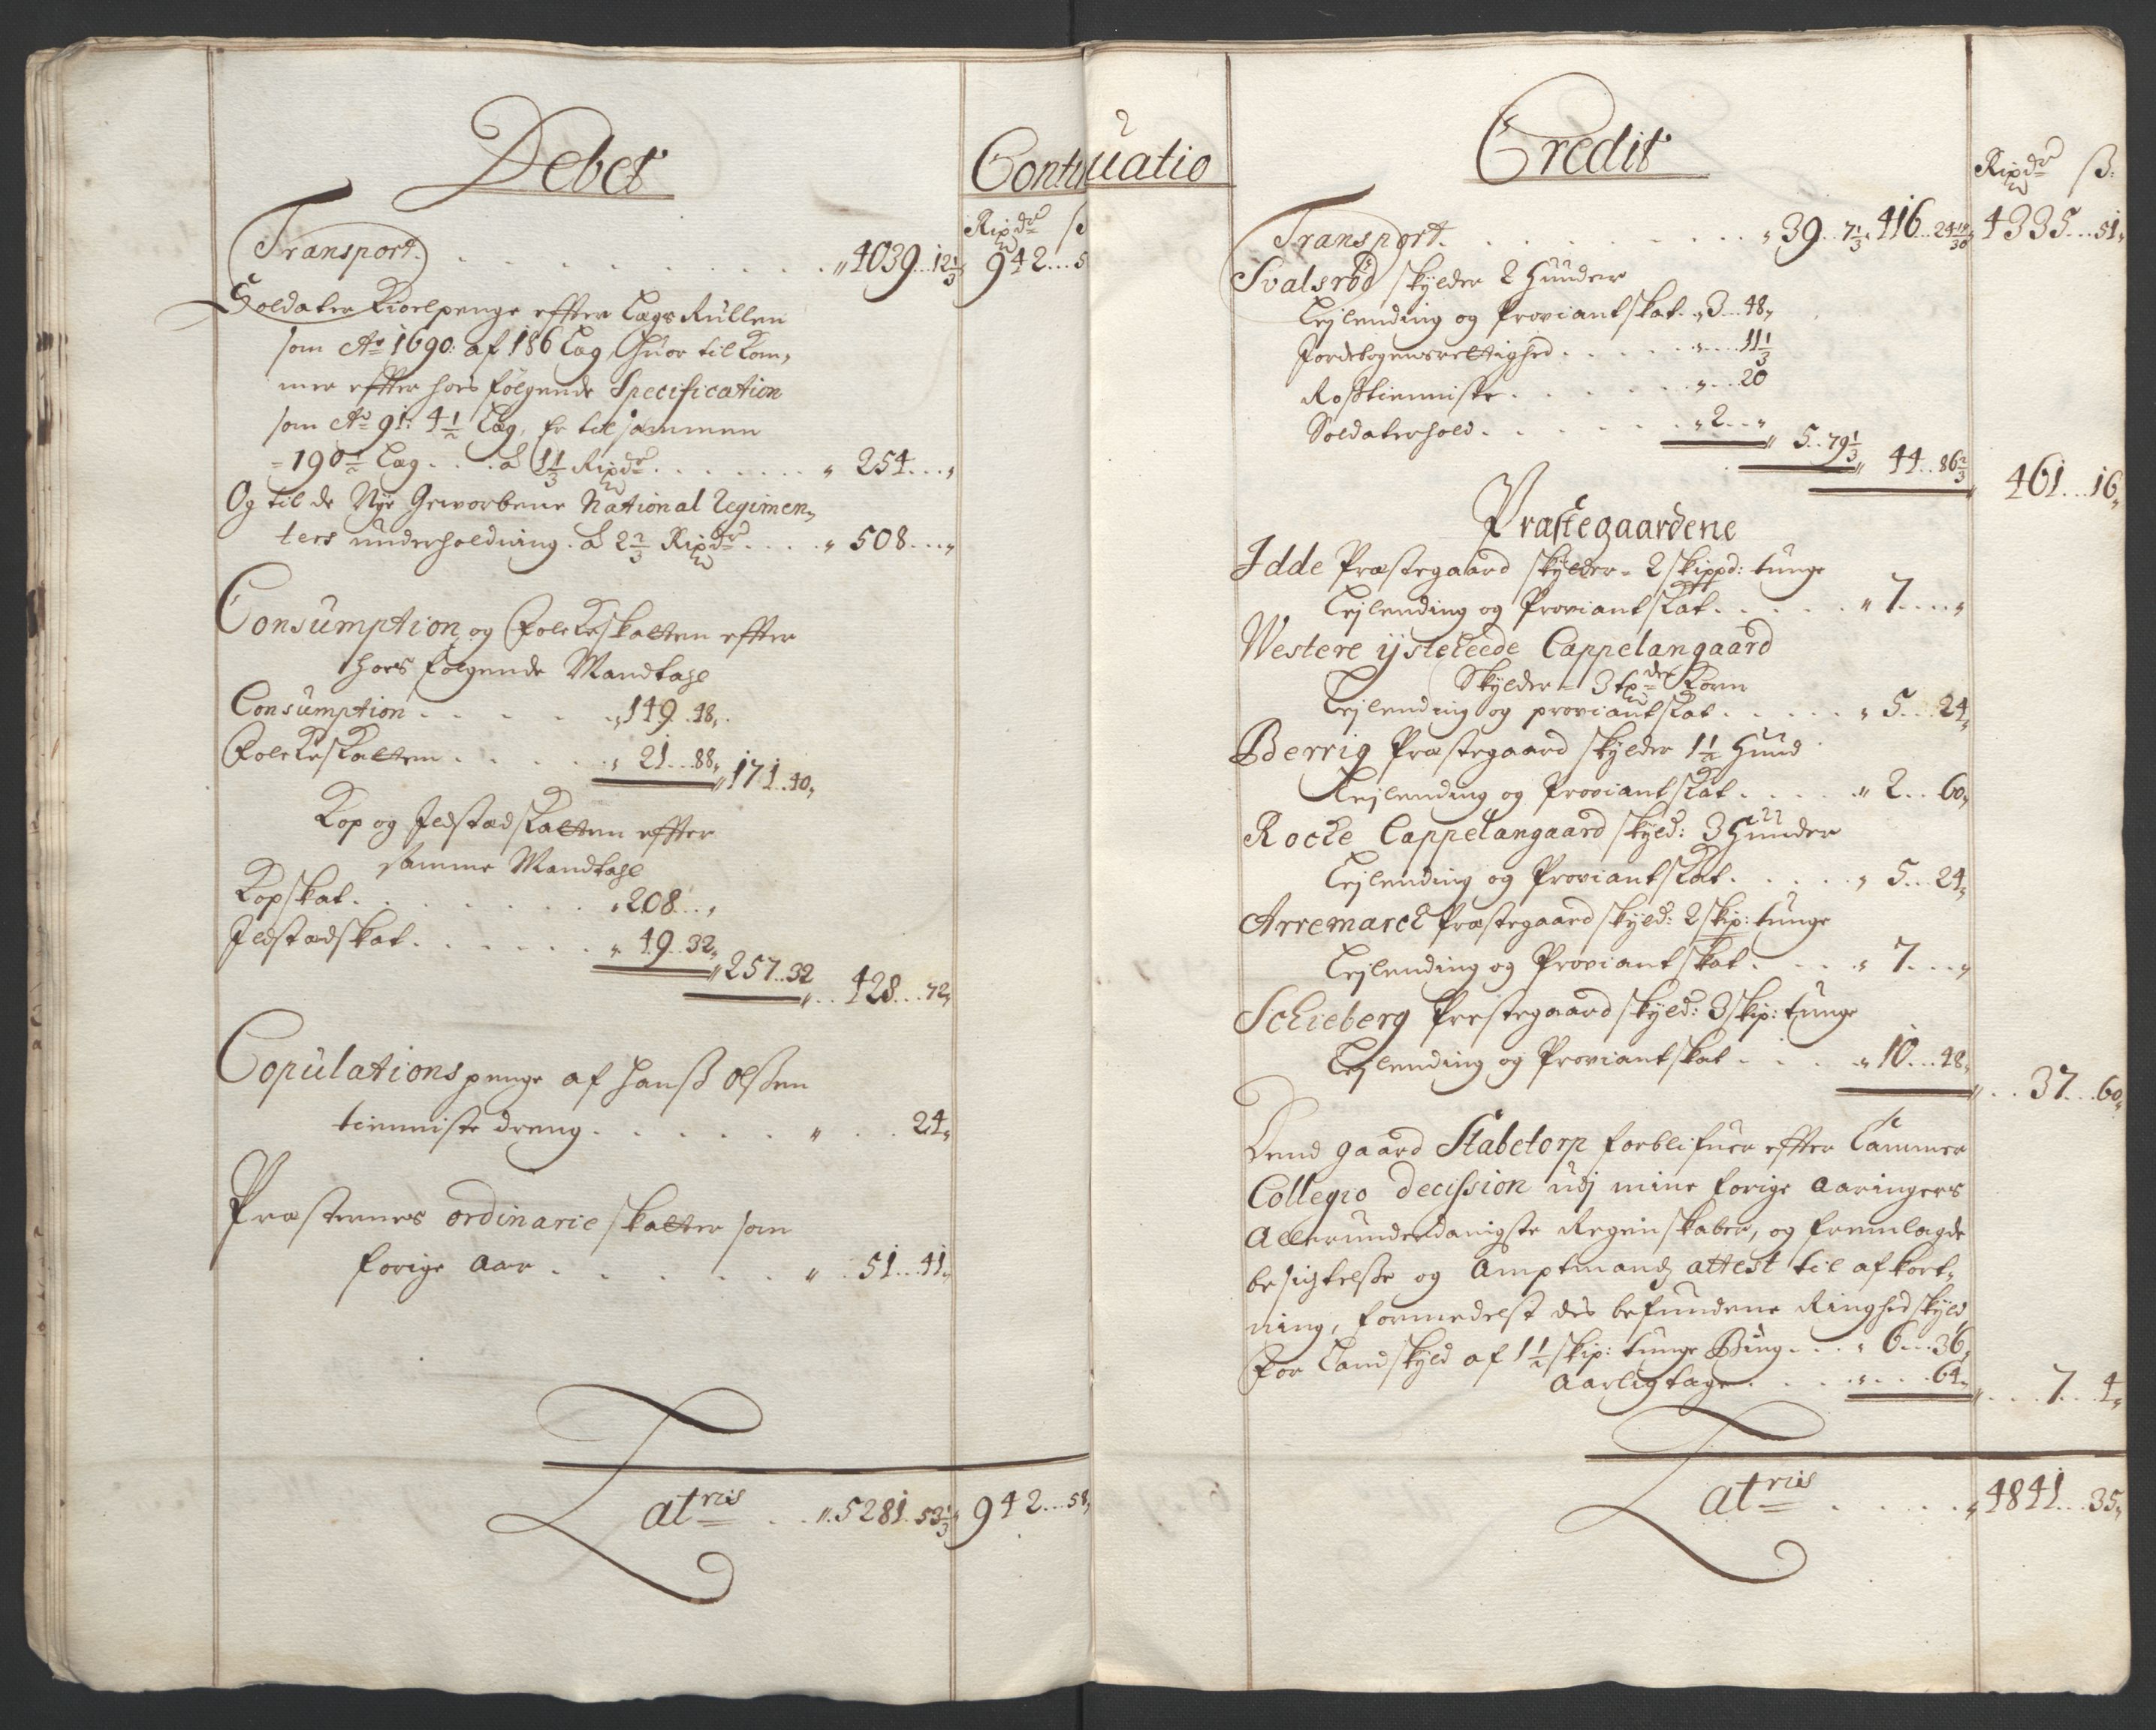 Debet
Continuatio
Rixdr ß
Transport. . . . . . . . . . . . „ 4039..12⅓ „ 942...5
Soldater Kioelpenge effter Lægs Rullen
som Ao 1690: af 186 Læg, Huor til kom„
mer effter hoes følgende Specification
som Ao 91: 4½ Læg, Er tilsammen
= 190½ Læg . . . â 1⅓ Rixdr. . . . . . „ 254...„
Og til de Nye Geworbene National Regimen„
ters underholdning. â 2⅔ Rixdr. . . . „ 508...„
Consumption og Folckeskatten effter
hoes følgende Mandtahl
Consumption . . . . . „ 149..48„
Folckeskatten . . . . . „ 21...88„ „ 171..40„
Kop og Ildstædskatten effter
samme Mandtahl
Kopskat. . . . . . . „ 208...„
Ildstædskat. . . . . . „ 49..32„ „ 257..32 „.. 428...72„
Copulations penge af Hanß Olßen
tienniste dreng. . . . . „ . . 24„
Præsternes ordinarie skatter som
forige Aar . . . . . . „ . 51...41„
Latris . . „ 5281..53⅓ „ 942...58„
Credit
Rixdr ß:
Transport. . . . . . . . „ 39...7⅓ „ 416...24 11/30 „ 4335...51„
Svalsrød skylder 2 Hunder
Lejlending og Proviantskat. „ 3...48„
Fordebogensrettighed. . . . . „....11⅓
Roßtienniste. . . . . . „...20
Soldaterhold. . . . . . „ 2...„ „ 5..79⅓ „ 44..86⅔ „ 461...16„
Præstegaardene
Idde Præstegaard skylder = 2 skippd: tunge
Lejlending og Proviantskat. . . . „ 7....„
Westere ijsteleede Cappelangaard
Skylder = 3 txder Korn
Lejlending og proviantskat . . . . „ 5...24„
Berrig Præstegaard skylder 1½ Hund
Lejlending og Proviantskat. . . . „ 2...60„
Rocke Cappelangaard skyld: 3 Hunder
Lejlending og Proviantskat. . . . „ 5...24„
Arremarck Præstegaard skyld: 2 skip: tunge
Lejlending og Proviantskat. . . . „ 7....„
Schieberg Prestegaard skyld: 3 skip: tunge
Lejlending og Proviantskat . . . „ 10...48„ „... 37...60„
Dend gaard Stabetorp forblifuer effter Cammer
Collegio Decission udj mine forige Aaringers
Allerunderdanigste Regenskaber, og fremlagde
besigtelße og Amptmandz attest til afkort„
ning, formedelst des befundene Ringhed skyld,
For Landskyld af 1½ skip: tunge Bÿng. . . „ 6...36„
Aarligtage . . . . „....64„ „... 7...4„
Latris . . . . „ 4841...35„